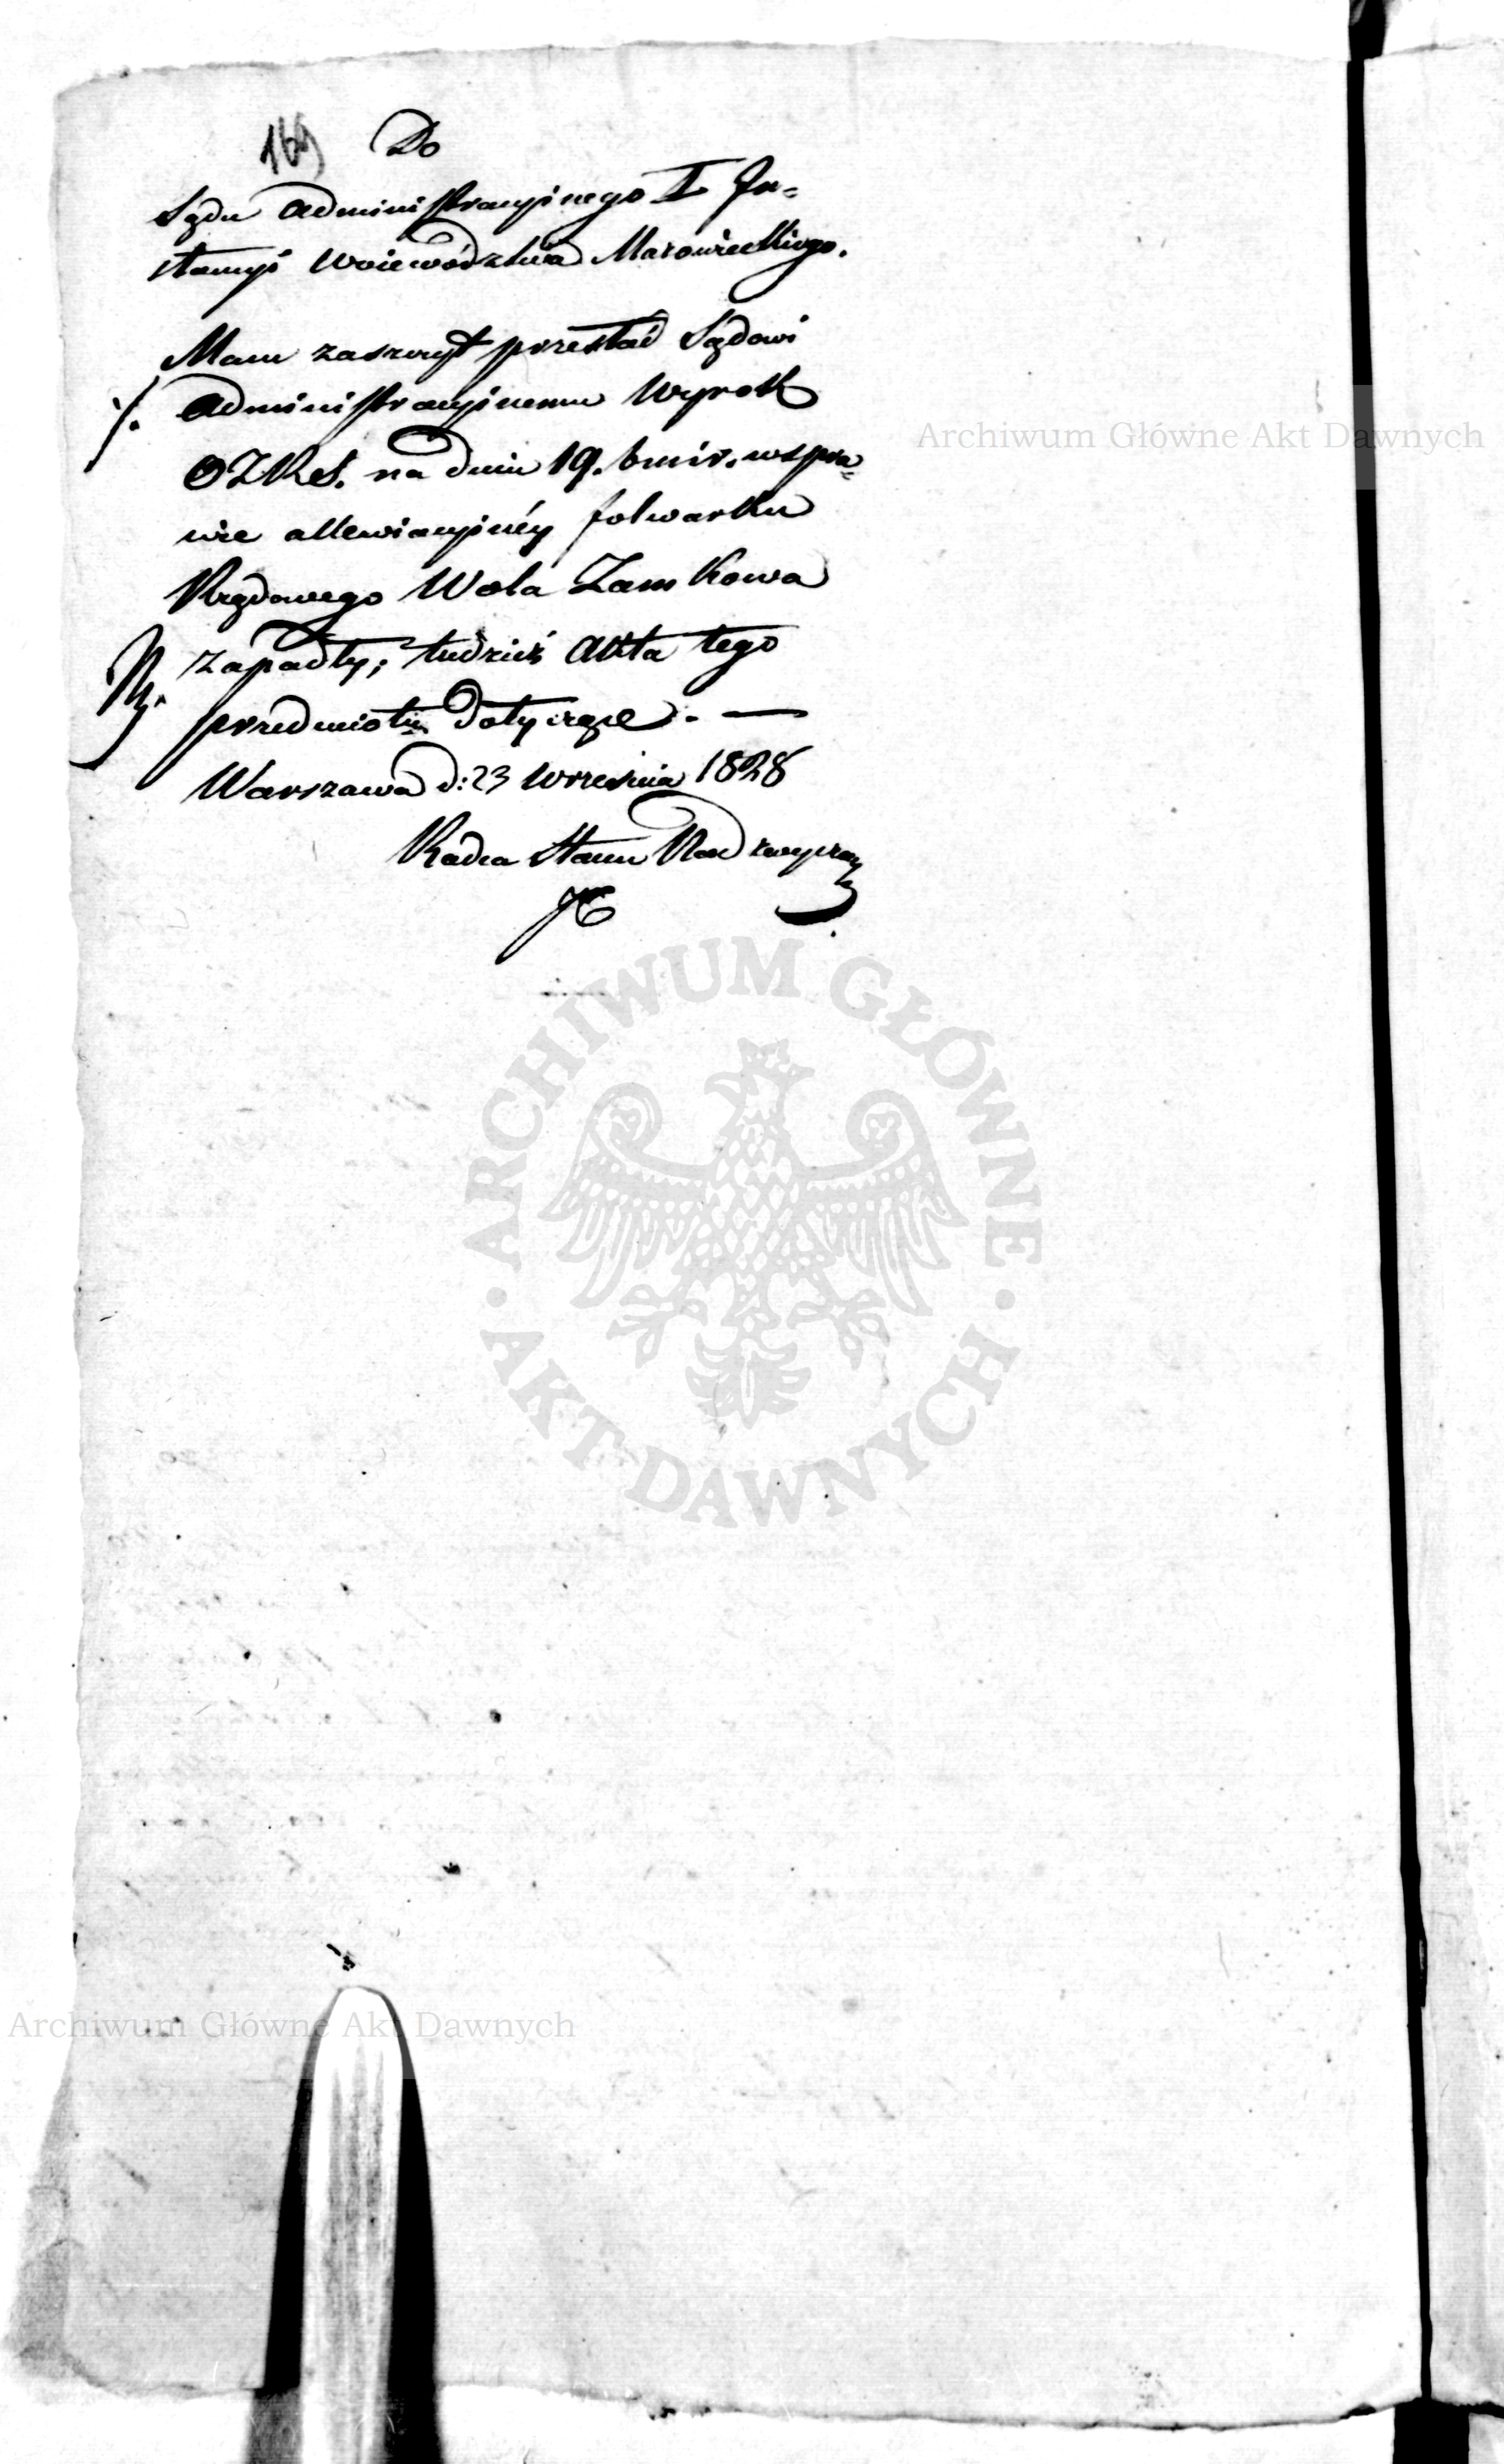 169 Do
Sądu Administracyinego I In=
stancyi Woiewództwa Mazowieckiego.
Mam zaszczyt przesłać Sądowi
./. Administracyinemu Wyrok
OZRS. na dniu 19. b mir. w spra=
wie allewiacyinéy folwarku
Rządowego Wola Zamkowa
zapadły; tudzież Akta tego
przedmiotu dotyczące. —
Warszawa d: 23 Września 1828
Radca Stanu Nadzwyczay
Archiwum Główne Akt Dawnych
ARCHIWUM GŁÓWNE
AKT DAWNYCH
Archiwum Główne Akt Dawnych